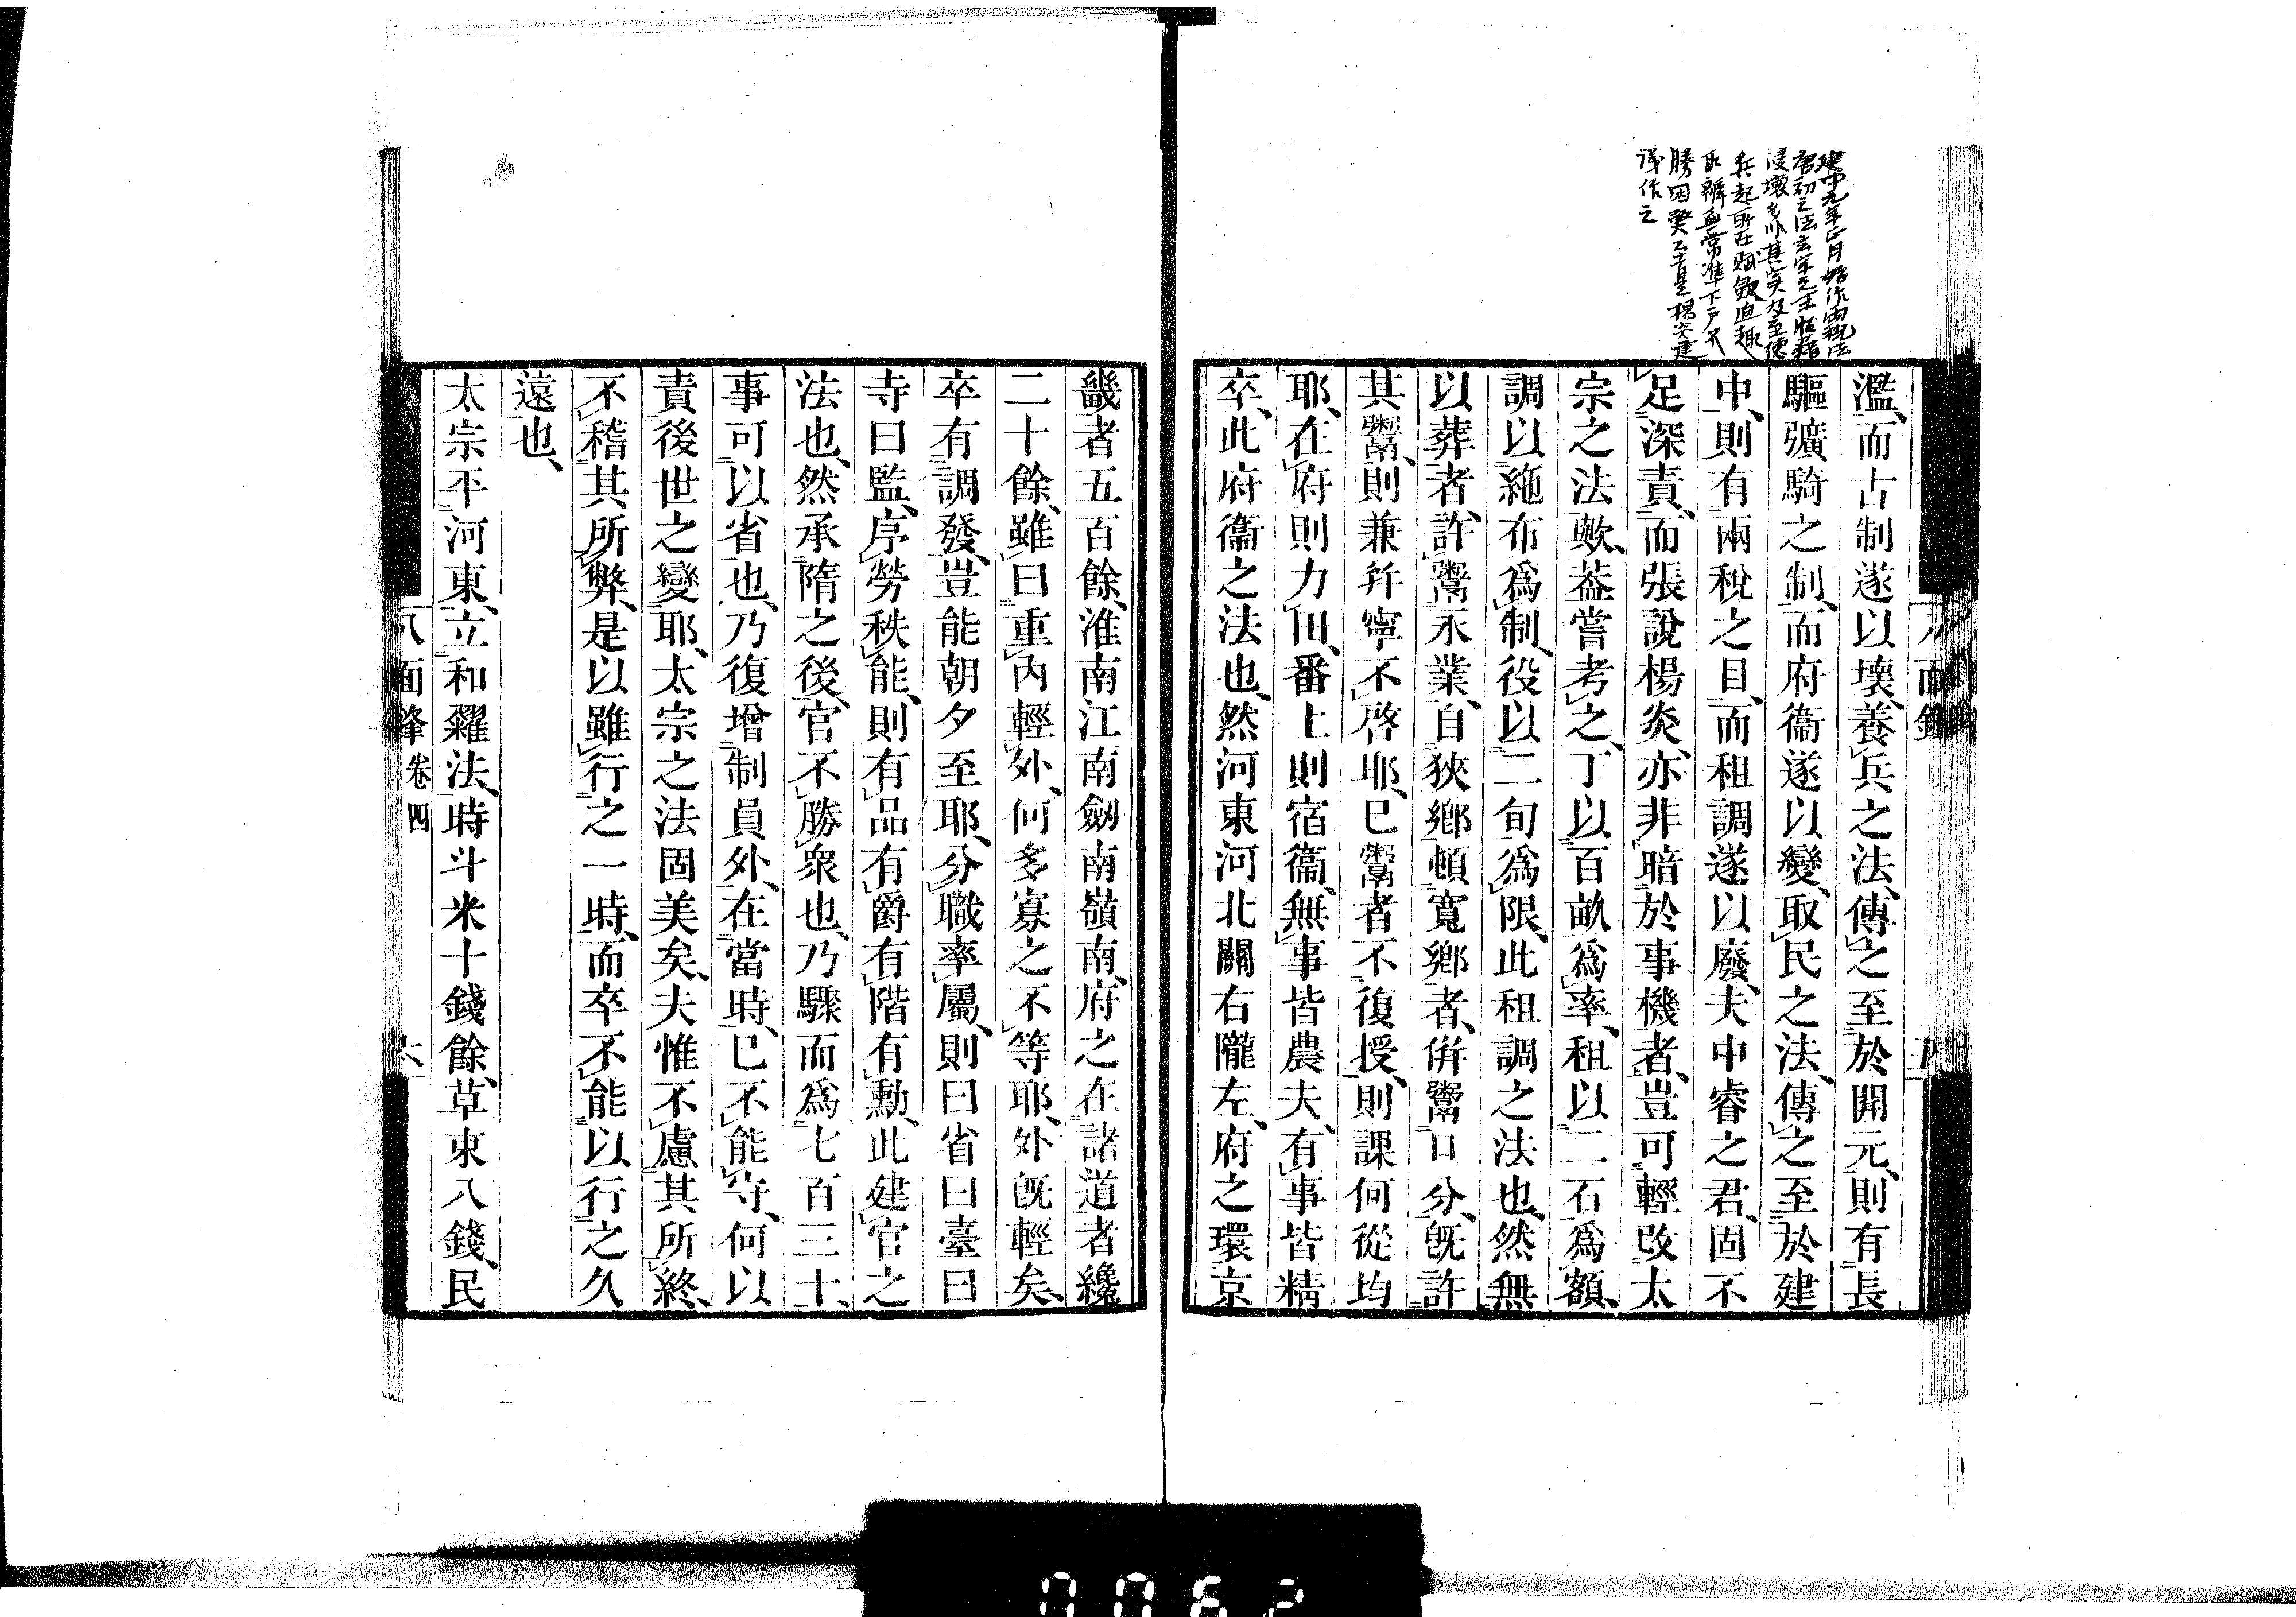 建中元年正月始作兩税法
唐初之法玄宗之末版籍
浸壞多非其實及至德
兵起所在賦斂迫趣
取辨無常準下戸不
勝困弊至是楊炎建
議作之
濫、而古制遂以壞、養兵之法、傳之至於開元、則有長
驅彍騎之制、而府衞遂以變、取民之法、傳之至於建
中、則有兩稅之目、而租調遂以廢、夫中睿之君、固不
足深責、而張說楊炎、亦非暗於事機者、豈可輕改太
宗之法歟、葢嘗考之、丁以百畝爲率、租以二石爲額、
調以絁布爲制、役以二旬爲限、此租調之法也、然無
以葬者、許鬻永業、自狹鄉頓寬鄉者、倂鬻口分、旣許
其鬻、則兼幷寧不啓耶、已鬻者不復授、則課何從均
耶、在府則力田、番上則宿衞、無事皆農夫、有事皆精
卒、此府衞之法也、然河東河北關右隴左、府之環京
畿者五百餘、淮南江南劔南嶺南、府之在諸道者纔
二十餘、雖曰重內輕外、何多寡之不等耶、外旣輕矣、
卒有調發、豈能朝夕至耶、分職率屬、則曰省曰臺曰
寺曰監、序勞秩能、則有品有爵有階有勳、此建官之
法也、然承隋之後、官不勝衆也、乃驟而爲七百三十、
事可以省也、乃復增制員外、在當時、已不能守、何以
責後世之變耶、太宗之法固美矣、夫惟不慮其所終、
不稽其所弊、是以雖行之一時、而卒不能以行之久
遠也、
太宗平河東、立和糴法、時斗米十錢餘、草束八錢、民
八面鋒 卷四 六
0062